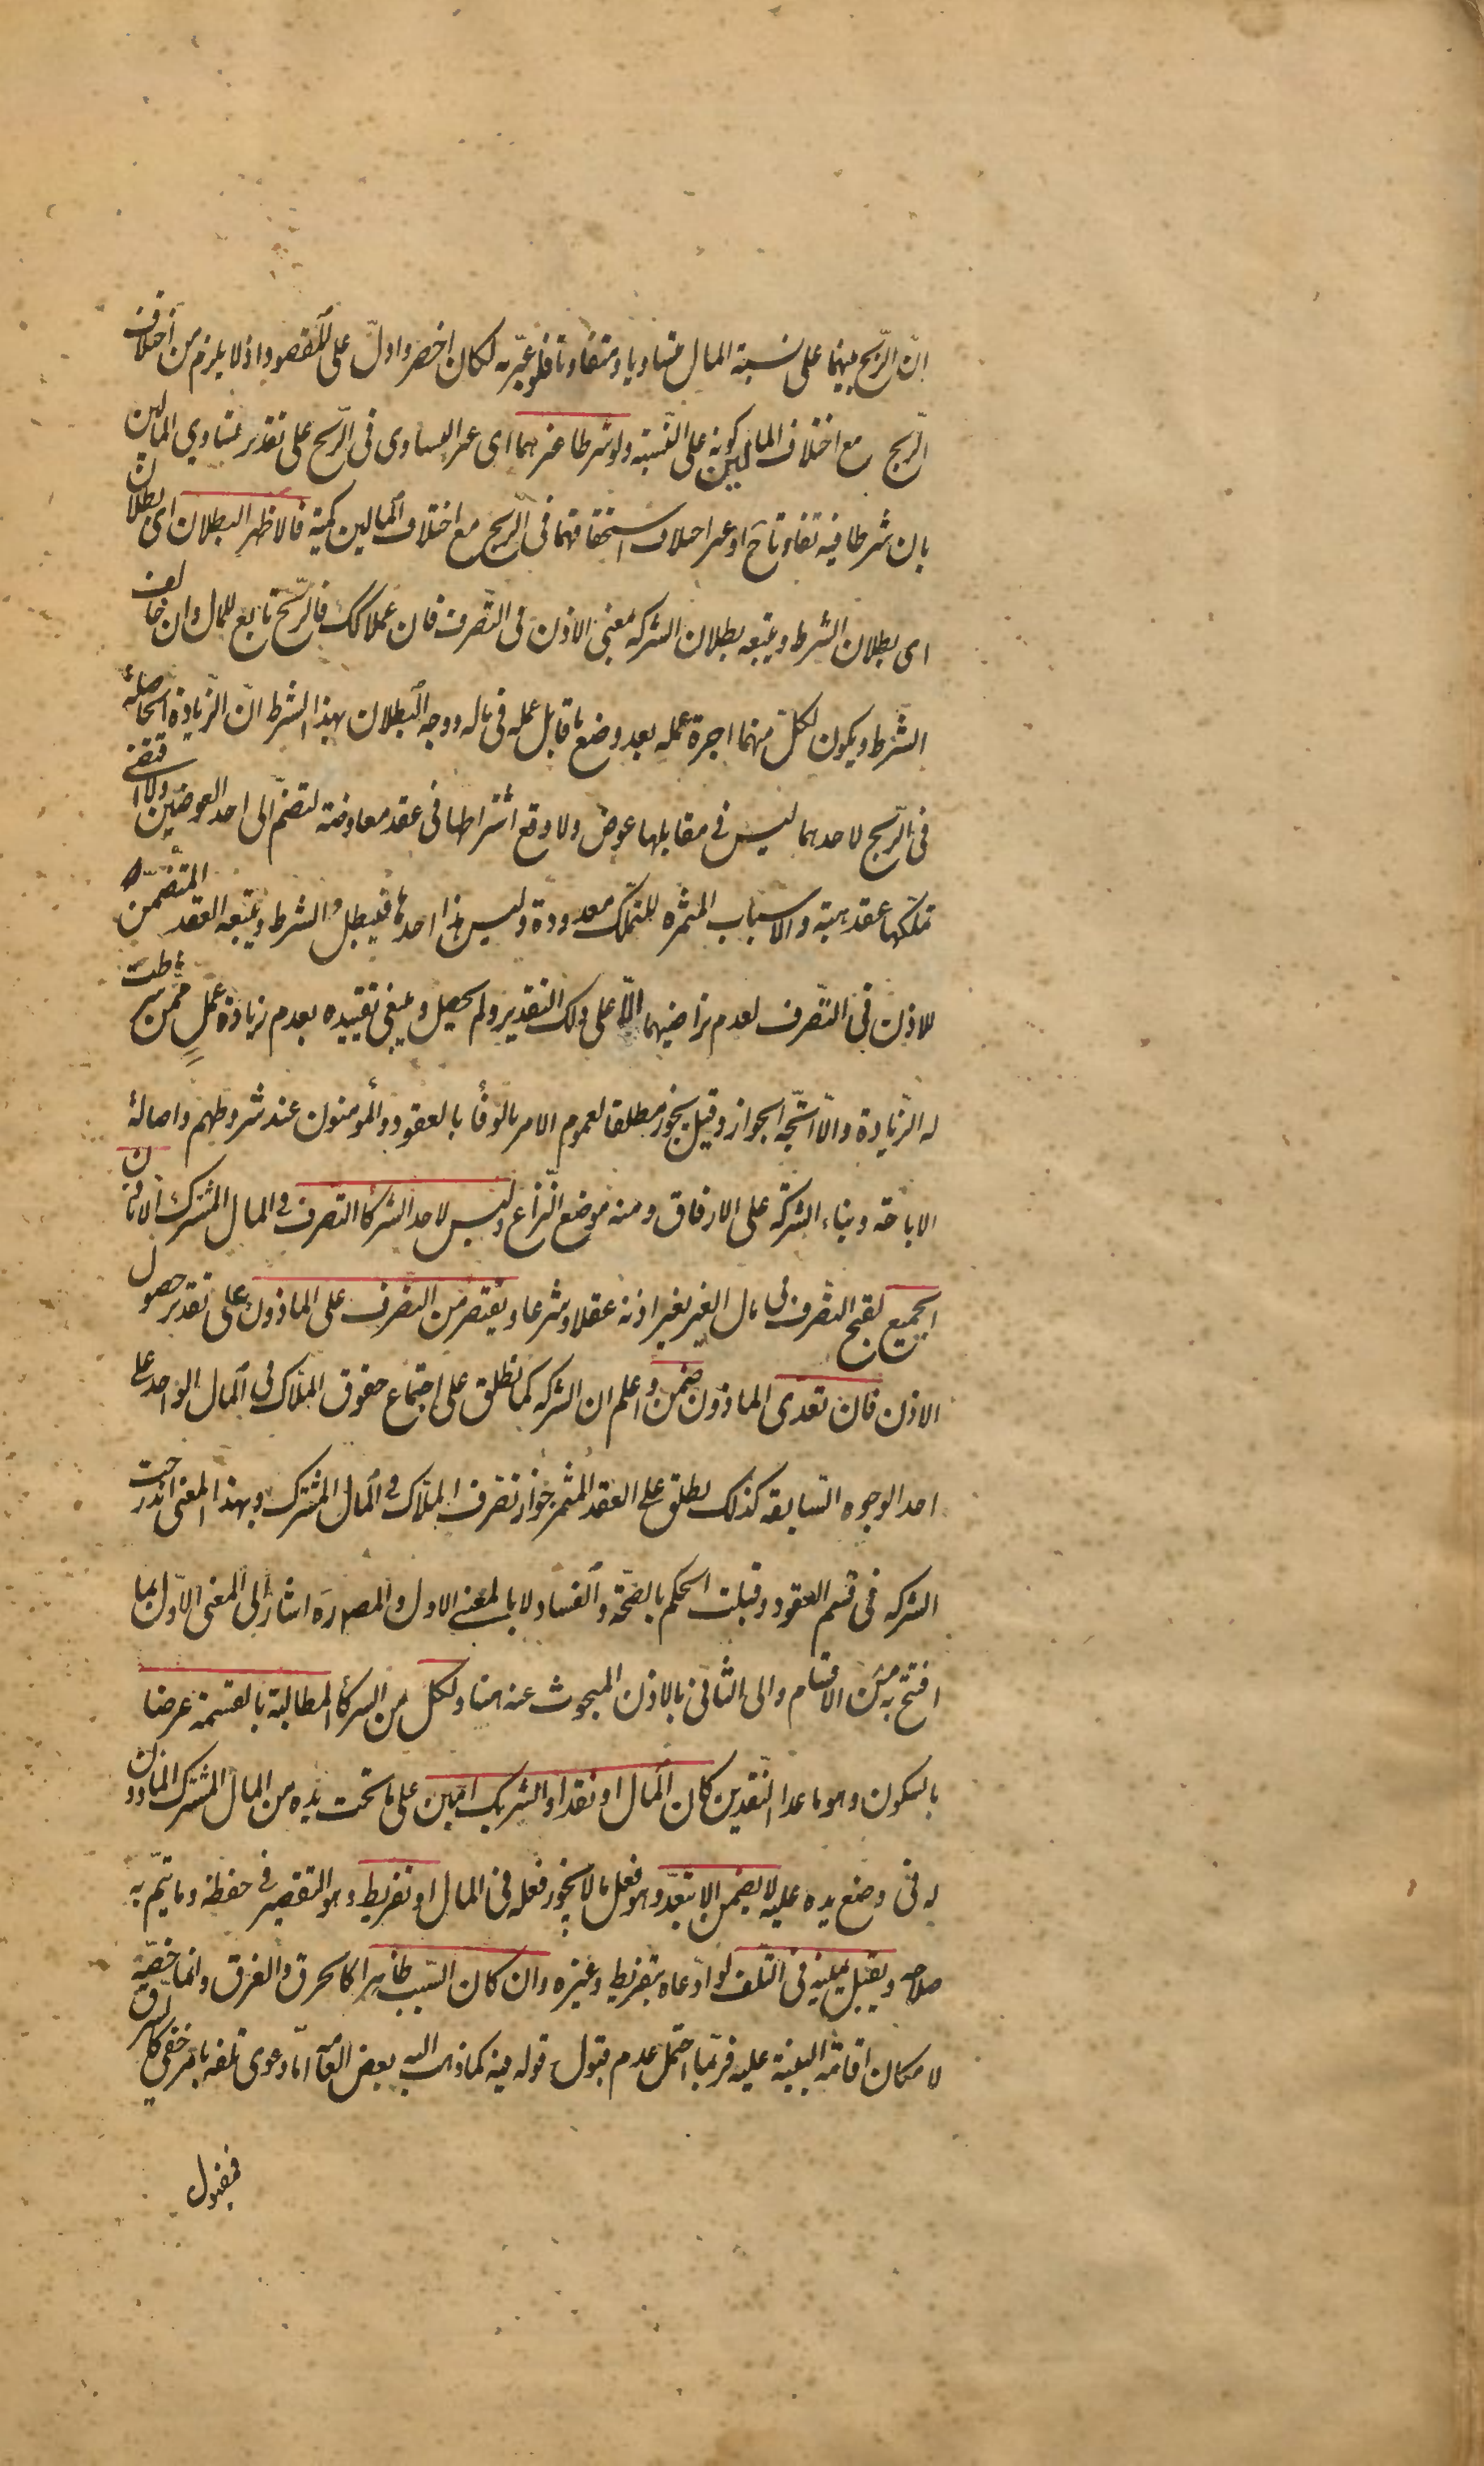 ان الربح بينهما على نسبة المال متساويا ومتفاوتا فلو عبر به لكان اخصر وادل على المقصود اذ لا يلزم من اختلاف
الربح مع اختلاف المالين كونه على النسبة ولو شرطا غيرهما اى غير التساوى فى الربح على تقدير تساوي المالين
بان شرطا فيه تفاوتا ح او غير اختلاف استحقاقهما فى الربح مع اختلاف المالين كمية فالاظهر البطلان اى بطلان
اى بطلان الشرط ويتبعه بطلان الشركه بمعنى الاذن فى التصرف فان عملا كك فالربح تابع للمال وان خالف
الشرط ويكون لكل منهما اجرة عمله بعد وضع ما قابل عمله فى ماله ووجه البطلان بهذا الشرط ان الزيادة الحاصلة
فى الربح لاحدهما ليس فى مقابلها عوض ولا وقع اشتراطها فى عقد معاوضة لتضم الى احد العوضين ولا اقتضى
تملكها عقد هبة والاسباب المثمره للتملك معدودة وليس هذا احدها فيبطل الشرط ويتبعه العقد المتضمن
للاذن فى التصرف لعدم تراضيهما الا على ذلك التقدير ولم يحصل وينبغى تقييده بعدم زيادة عمل ممن شرطت
له الزيادة والا اتجه الجواز وقيل يجوز مطلقا لعموم الامر بالوفأ بالعقود والمؤمنون عند شروطهم واصالة
الاباحة وبناء الشركة على الارفاق ومنه موضع النزاع وليس لاحد الشركأ التصرف فى المال المشترك الا باذن
الجميع لقبح التصرف فى مال الغير بغير اذنه عقلا وشرعا ويقتصر من التصرف على الماذون على تقدير حصول
الاذن فان تعدى الماذون ضمن واعلم ان الشركه كما تطلق على اجتماع حقوق الملاك فى المال الواحد على
احد الوجوه السابقه كذلك يطلق على العقد المثمر جواز تصرف الملاك فى المال المشترك وبهذا المعنى اندرجت
الشركه فى قسم العقود وقبلت الحكم بالصحة والفساد لا بالمعنى الاول والمص ره اشار الى المعنى الاول بما
افتتح به من الاقسام والى الثانى بالاذن المبحوث عنه هنا ولكل من الشركأ المطالبة بالقسمة عرضا
بالسكون وهو ما عدا النقدين كان المال او نقدا والشريك امين على ما تحت يده من المال المشترك الماذون
له فى وضع يده عليه لا يضمن الا بتعد وهو فعل ما لا يجوز فعله فى المال او تفريط وهو التقصير فى حفظه وما يتم به
صلاحه ويقبل يمينه فى التلف لو ادعاه بتفريط وغيره وان كان السبب ظاهرا كالحرق والغرق وانما خصه
لامكان اقامة البينة عليه فربما احتمل عدم قبول قوله فيه كما ذهب اليه بعض العامة اما دعوى تلفه بامر خفى كالسرق
فمقبول